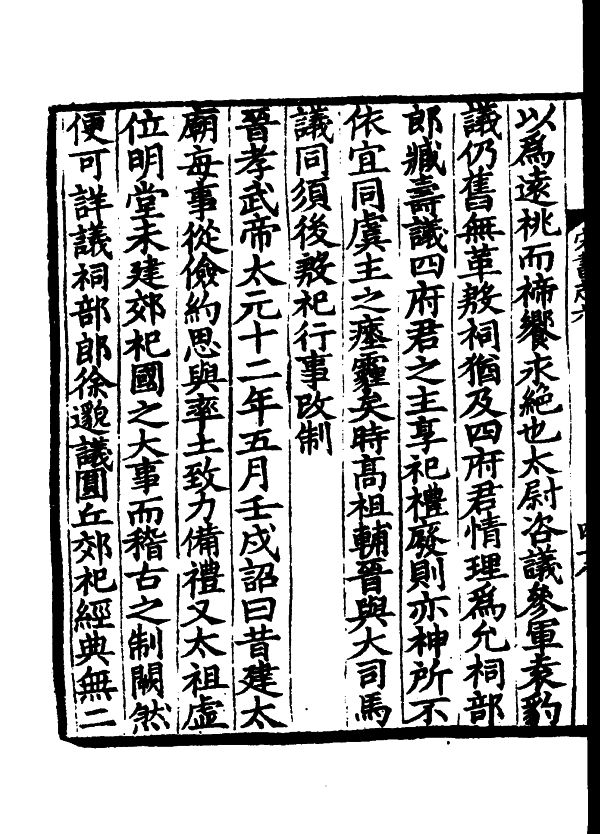 以爲遠祧而禘饗永絕也太尉咨議參軍袁豹
議仍舊無革殷祠猶及四府君情理爲允祠部
郎臧壽議四府君之主享祀禮廢則亦神所不
依宜同虞主之瘞霾矣時高祖輔晉與大司馬
議同須後殷祀行事改制
晉孝武帝太元十二年五月壬戌詔曰昔建太
廟每事從儉約思與率土致力備禮又太祖虛
位明堂未建郊祀國之大事而稽古之制闕然
便可詳議祠部郎徐邈議圓丘郊祀經典無二